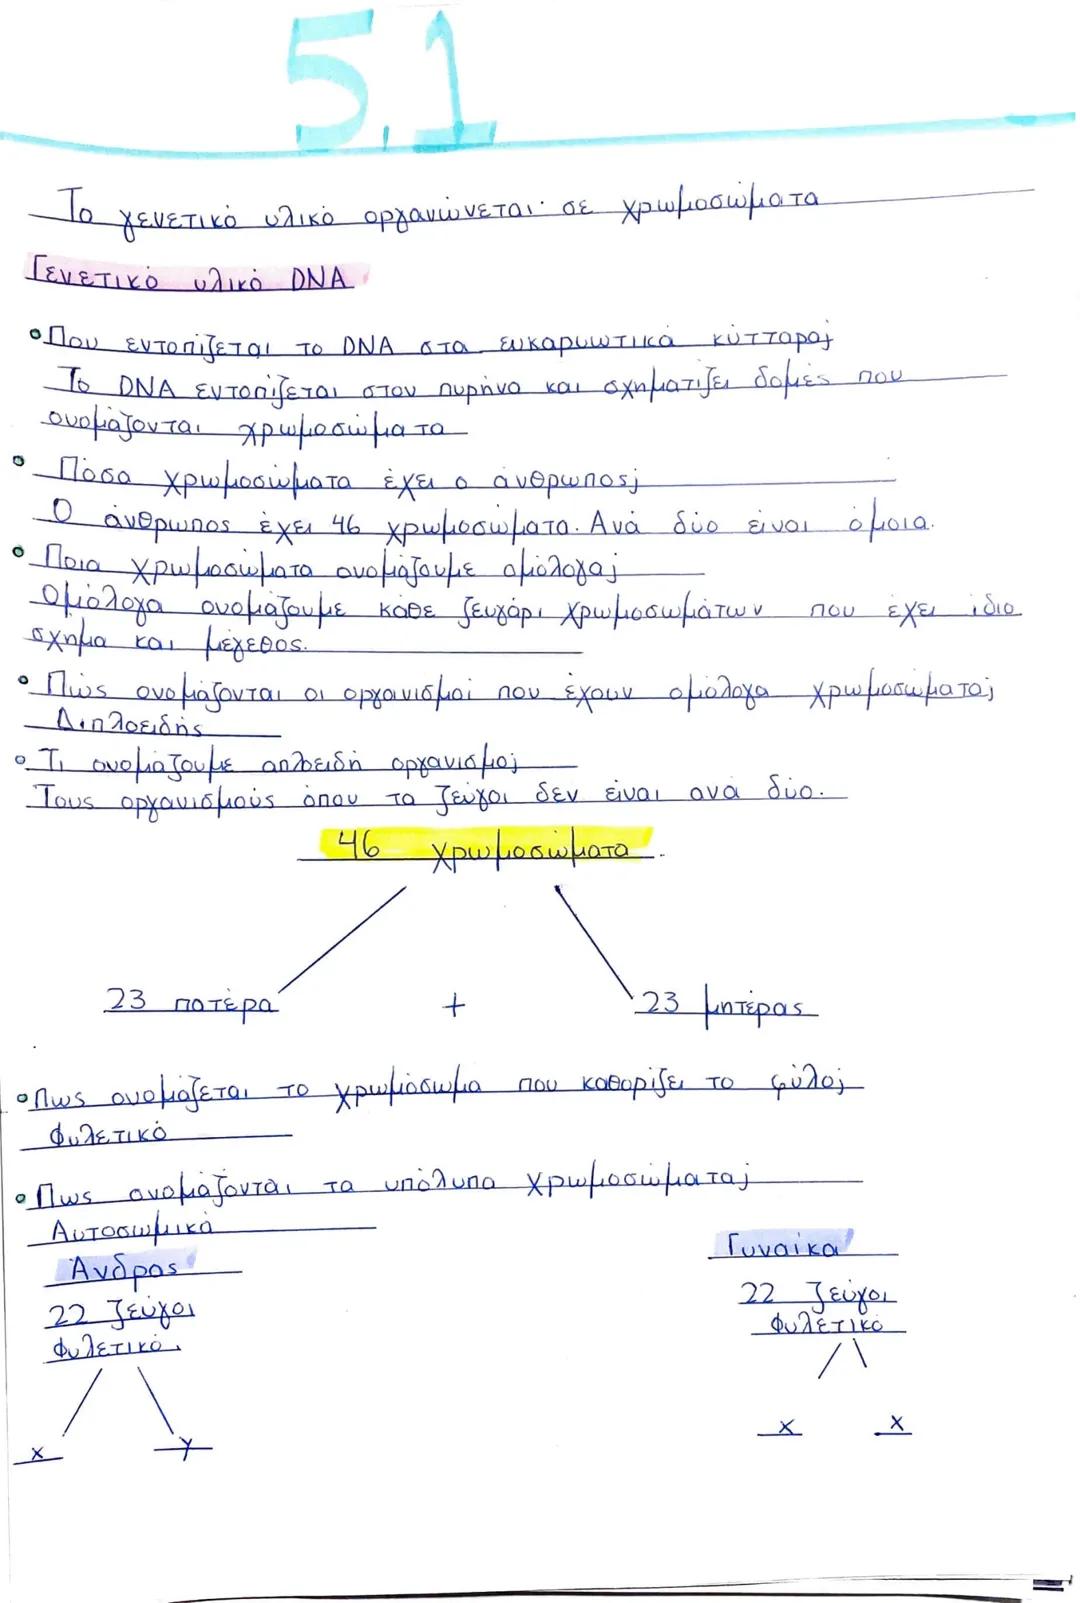 5.1
Το γενετικό υλικό οργανώνεται σε χρωμοσώματα
Γενετικό υλικό DNA
•Που εντοπίζεται το DNA στα ευκαρυωτικά κύτταρα;
Το DNA εντοπίζεται στον πυρήνα και σχηματίζει δομές που
ονομάζονται χρωμοσώματα
• Πόσα χρωμοσώματα έχει ο άνθρωπος;
Ο άνθρωπος έχει 46 χρωμοσώματα. Ανά δύο είναι όμοια.
• Ποια χρωμοσώματα ονομάζουμε ομόλογα;
Ομόλογα ονομάζουμε κάθε ζευγάρι χρωμοσωμάτων που έχει ίδιο
σχήμα και μέγεθος.
• Πώς ονομάζονται οι οργανισμοί που έχουν ομόλογα χρωμοσώματα;
Διπλοειδής
• Τι ονομάζουμε απλοειδή οργανισμο;
Τους οργανισμούς όπου τα ζεύγοι δεν είναι ανά δύο.
46 χρωμοσώματα.
23 πατέρα + 23 μητέρας
•Πως ονομάζεται το χρωμόσωμα που καθορίζει το φύλο;
Φυλετικό
• Πως ονομάζονται τα υπόλυπα χρωμοσώματα;
Αυτοσωμικά
Άνδρας
22 ζεύγοι
Φυλετικό.
x y
Γυναίκα
22 ζεύγοι
Φυλετικό
x x